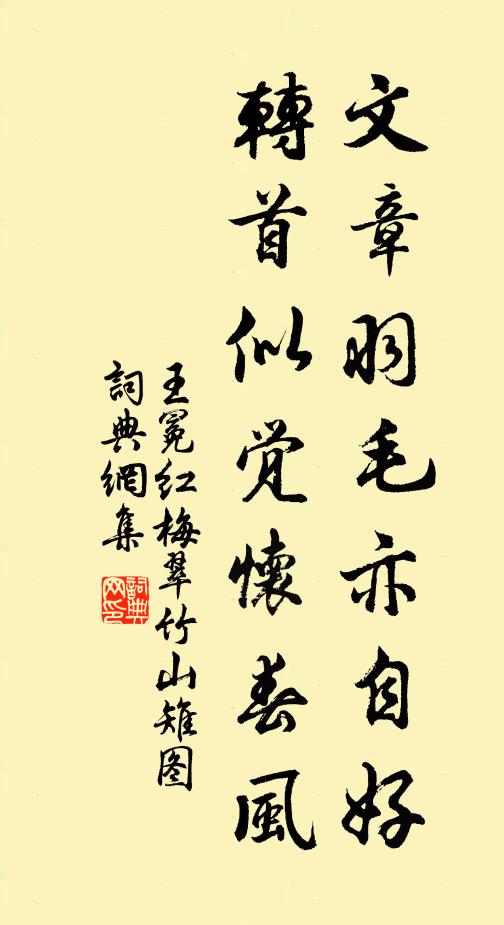 文章羽毛亦自好
轉首似覺懷春風
王冕红梅翠竹山雉图
詞典網集
詞典
网印